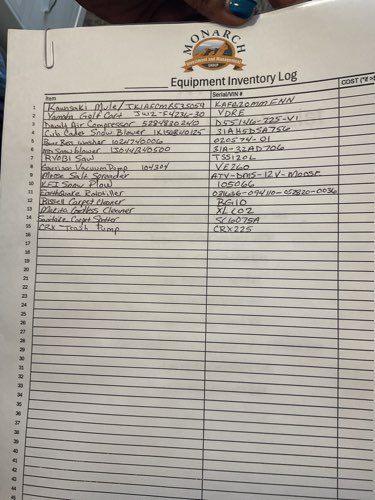 MONARCH
Investment and Management
GROUP
Equipment Inventory Log
Item Serial/VIN # COST (*If >$
1 Kawasaki Mule/JK1AFCMB535059 KAF820MMENN
2 Yamaha Golf Cart JW2-F4236-30 VDRE
3 Dewalt Air Compressor 5284830240 D55146-225-V1
4 Cub Cadet Snow Blower 1K150B40125 31AH5DSA756
5 Power washer 1024740006 020574-01
6 MTD Snow blower 13014B40500 31A-32AD706
7 RYOBI Saw TSS120L
8 Vacuum Pump 104304 VE260
9 Moose Salt Spreader ATV-DMS-12V-MOOSE
10 KFI Snow Plow 105066
11 Earthquake Rototiller
12 Bissell Carpet Cleaner BG10
13 Makita Cordless Cleaner XLC02
14 Carpet Spotter SC6075A
15 CRX Trash Pump CRX225
16
17
18
19
20
21
22
23
24
25
26
27
28
29
30
31
32
33
34
35
36
37
38
39
40
41
42
43
44